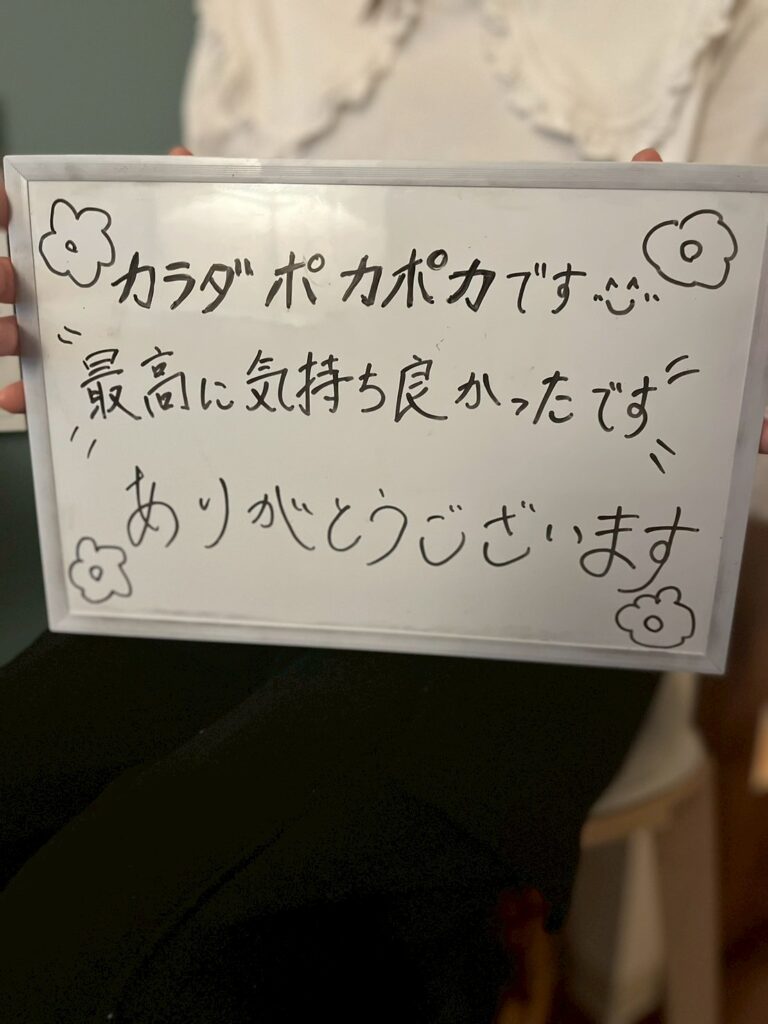 カラダポカポカです
最高に気持ち良かったです
ありがとうございます